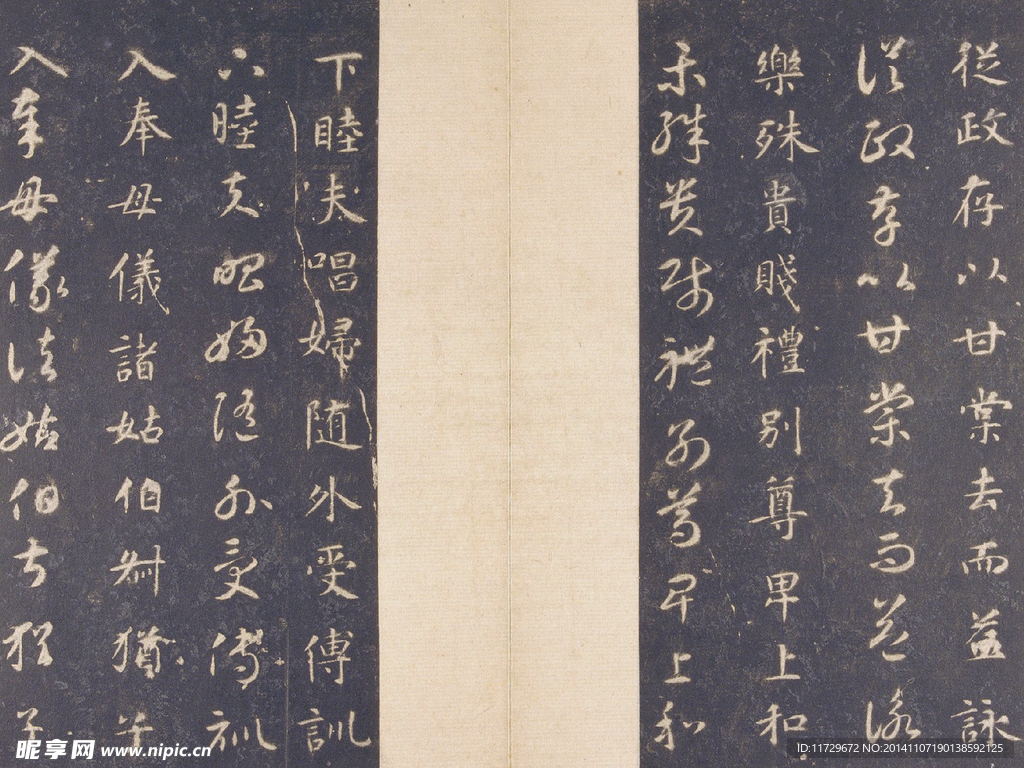 從政存以甘棠去而益詠
從政存以甘棠去而益詠
樂殊貴賤禮別尊卑上和
樂殊貴賤禮別尊卑上和
下睦夫唱婦随外受傅訓
下睦夫唱婦随外受傅訓
入奉母儀諸姑伯叔猶子
入奉母儀諸姑伯叔猶子
昵享网 www.nipic.cn
ID:11729672 NO:20141107190138592125